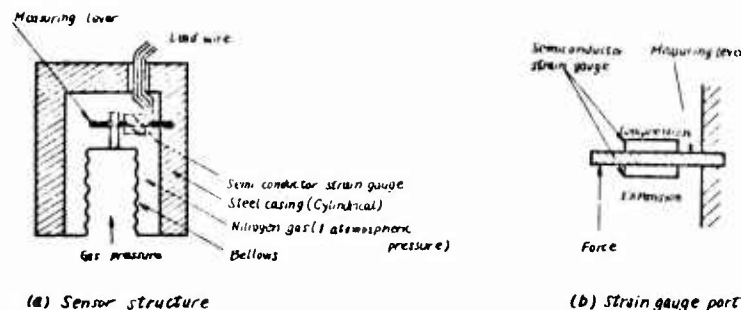 Measuring lever
Lead wire
Semi conductor strain gauge
Steel casing (Cylindrical)
Nitrogen gas (1 atomospheric
pressure)
Bellows
Gas pressure
(a) Sensor structure
Semiconductor
strain gauge
Measuring lever
Compression
Expansion
Force
(b) Strain gauge part